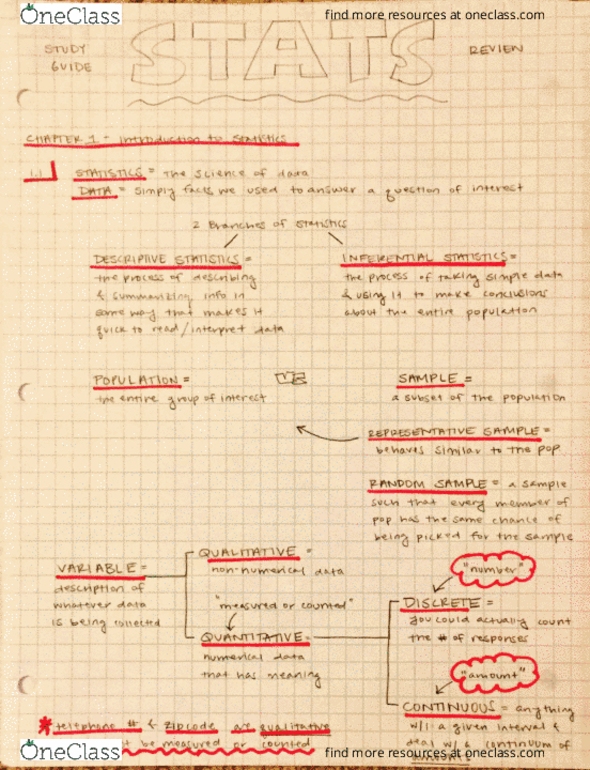 OneClass
find more resources at oneclass.com
STATS
STUDY
GUIDE
REVIEW
CHAPTER 1 - Introduction to Statistics
1.1
STATISTICS = the science of data
DATA = simply facts we used to answer a question of interest
2 Branches of Statistics
DESCRIPTIVE STATISTICS =
the process of describing
& summarizing info in
some way that makes it
quick to read/interpret data
INFERENTIAL STATISTICS =
the process of taking simple data
& using it to make conclusions
about the entire population
POPULATION =
the entire group of interest
VS
SAMPLE =
a subset of the population
REPRESENTATIVE SAMPLE =
behaves similar to the pop
RANDOM SAMPLE = a sample
such that every member of
pop has the same chance of
being picked for the sample
VARIABLE =
description of
whatever data
is being collected
QUALITATIVE =
non-numerical data
"measured or counted"
QUANTITATIVE =
numerical data
that has meaning
"number"
DISCRETE =
you could actually count
the # of responses
"amount"
CONTINUOUS = anything
w/i a given interval &
deal w/ a continuum of
*telephone # & zipcode are qualitative
be measured or counted
OneClass
find more resources at oneclass.com